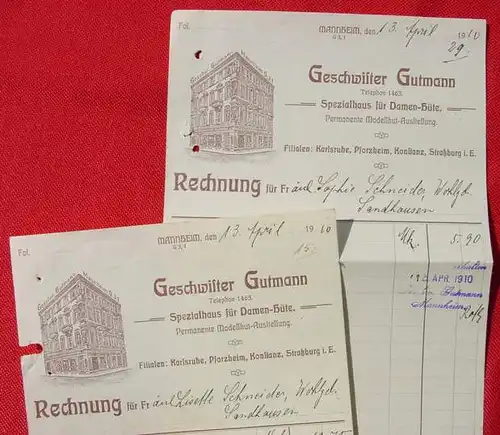 Fol.
MANNHEIM, den 13. April 1910
G 3, 1
29.
Geschwister Gutmann
Telephon 1463.
Spezialhaus für Damen-Hüte.
Permanente Modellhut-Ausstellung.
Filialen: Karlsruhe, Pforzheim, Konstanz, Straßburg i. E.
Rechnung für Fräul Sophie Schneider, Wohlgb.
Sandhausen
Mk. 5.90
APR. 1910
Gutmann
Mannheim
Fol.
MANNHEIM, den 13. April 1910
G 3, 1
15.
Geschwister Gutmann
Telephon 1463.
Spezialhaus für Damen-Hüte.
Permanente Modellhut-Ausstellung.
Filialen: Karlsruhe, Pforzheim, Konstanz, Straßburg i. E.
Rechnung für Fräul Lisette Schneider, Wohlgb.
Sandhausen